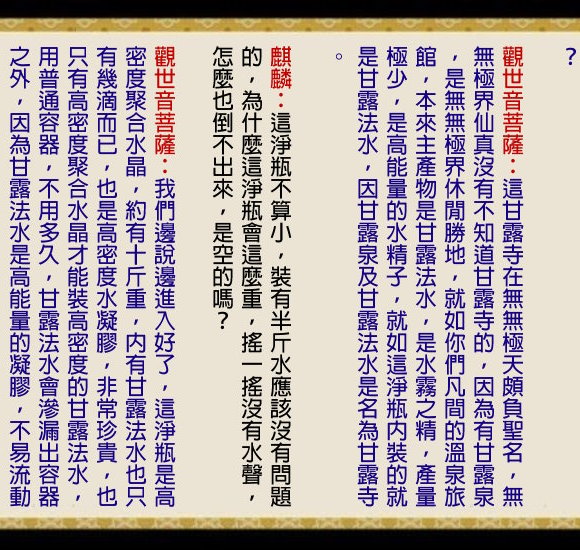 ？
觀世音菩薩：這甘露寺在無無極天頗負聖名，無
無極界仙真沒有不知道甘露寺的，因為有甘露泉
，是無無極界休閒勝地，就如你們凡間的溫泉旅
館，本來主產物是甘露法水，是水霧之精，產量
極少，是高能量的水精子，就如這淨瓶內裝的就
是甘露法水，因甘露泉及甘露法水是名為甘露寺
。
麒麟：這淨瓶不算小，裝有半斤水應該沒有問題
的，為什麼這淨瓶會這麼重，搖一搖沒有水聲，
怎麼也倒不出來，是空的嗎？
觀世音菩薩：我們邊說邊進入好了，這淨瓶是高
密度聚合水晶，約有十斤重，內有甘露法水也只
有幾滴而已，也是高密度水凝膠，非常珍貴，也
只有高密度聚合水晶才能裝高密度的甘露法水，
用普通容器，不用多久，甘露法水會滲漏出容器
之外，因為甘露法水是高能量的凝膠，不易流動